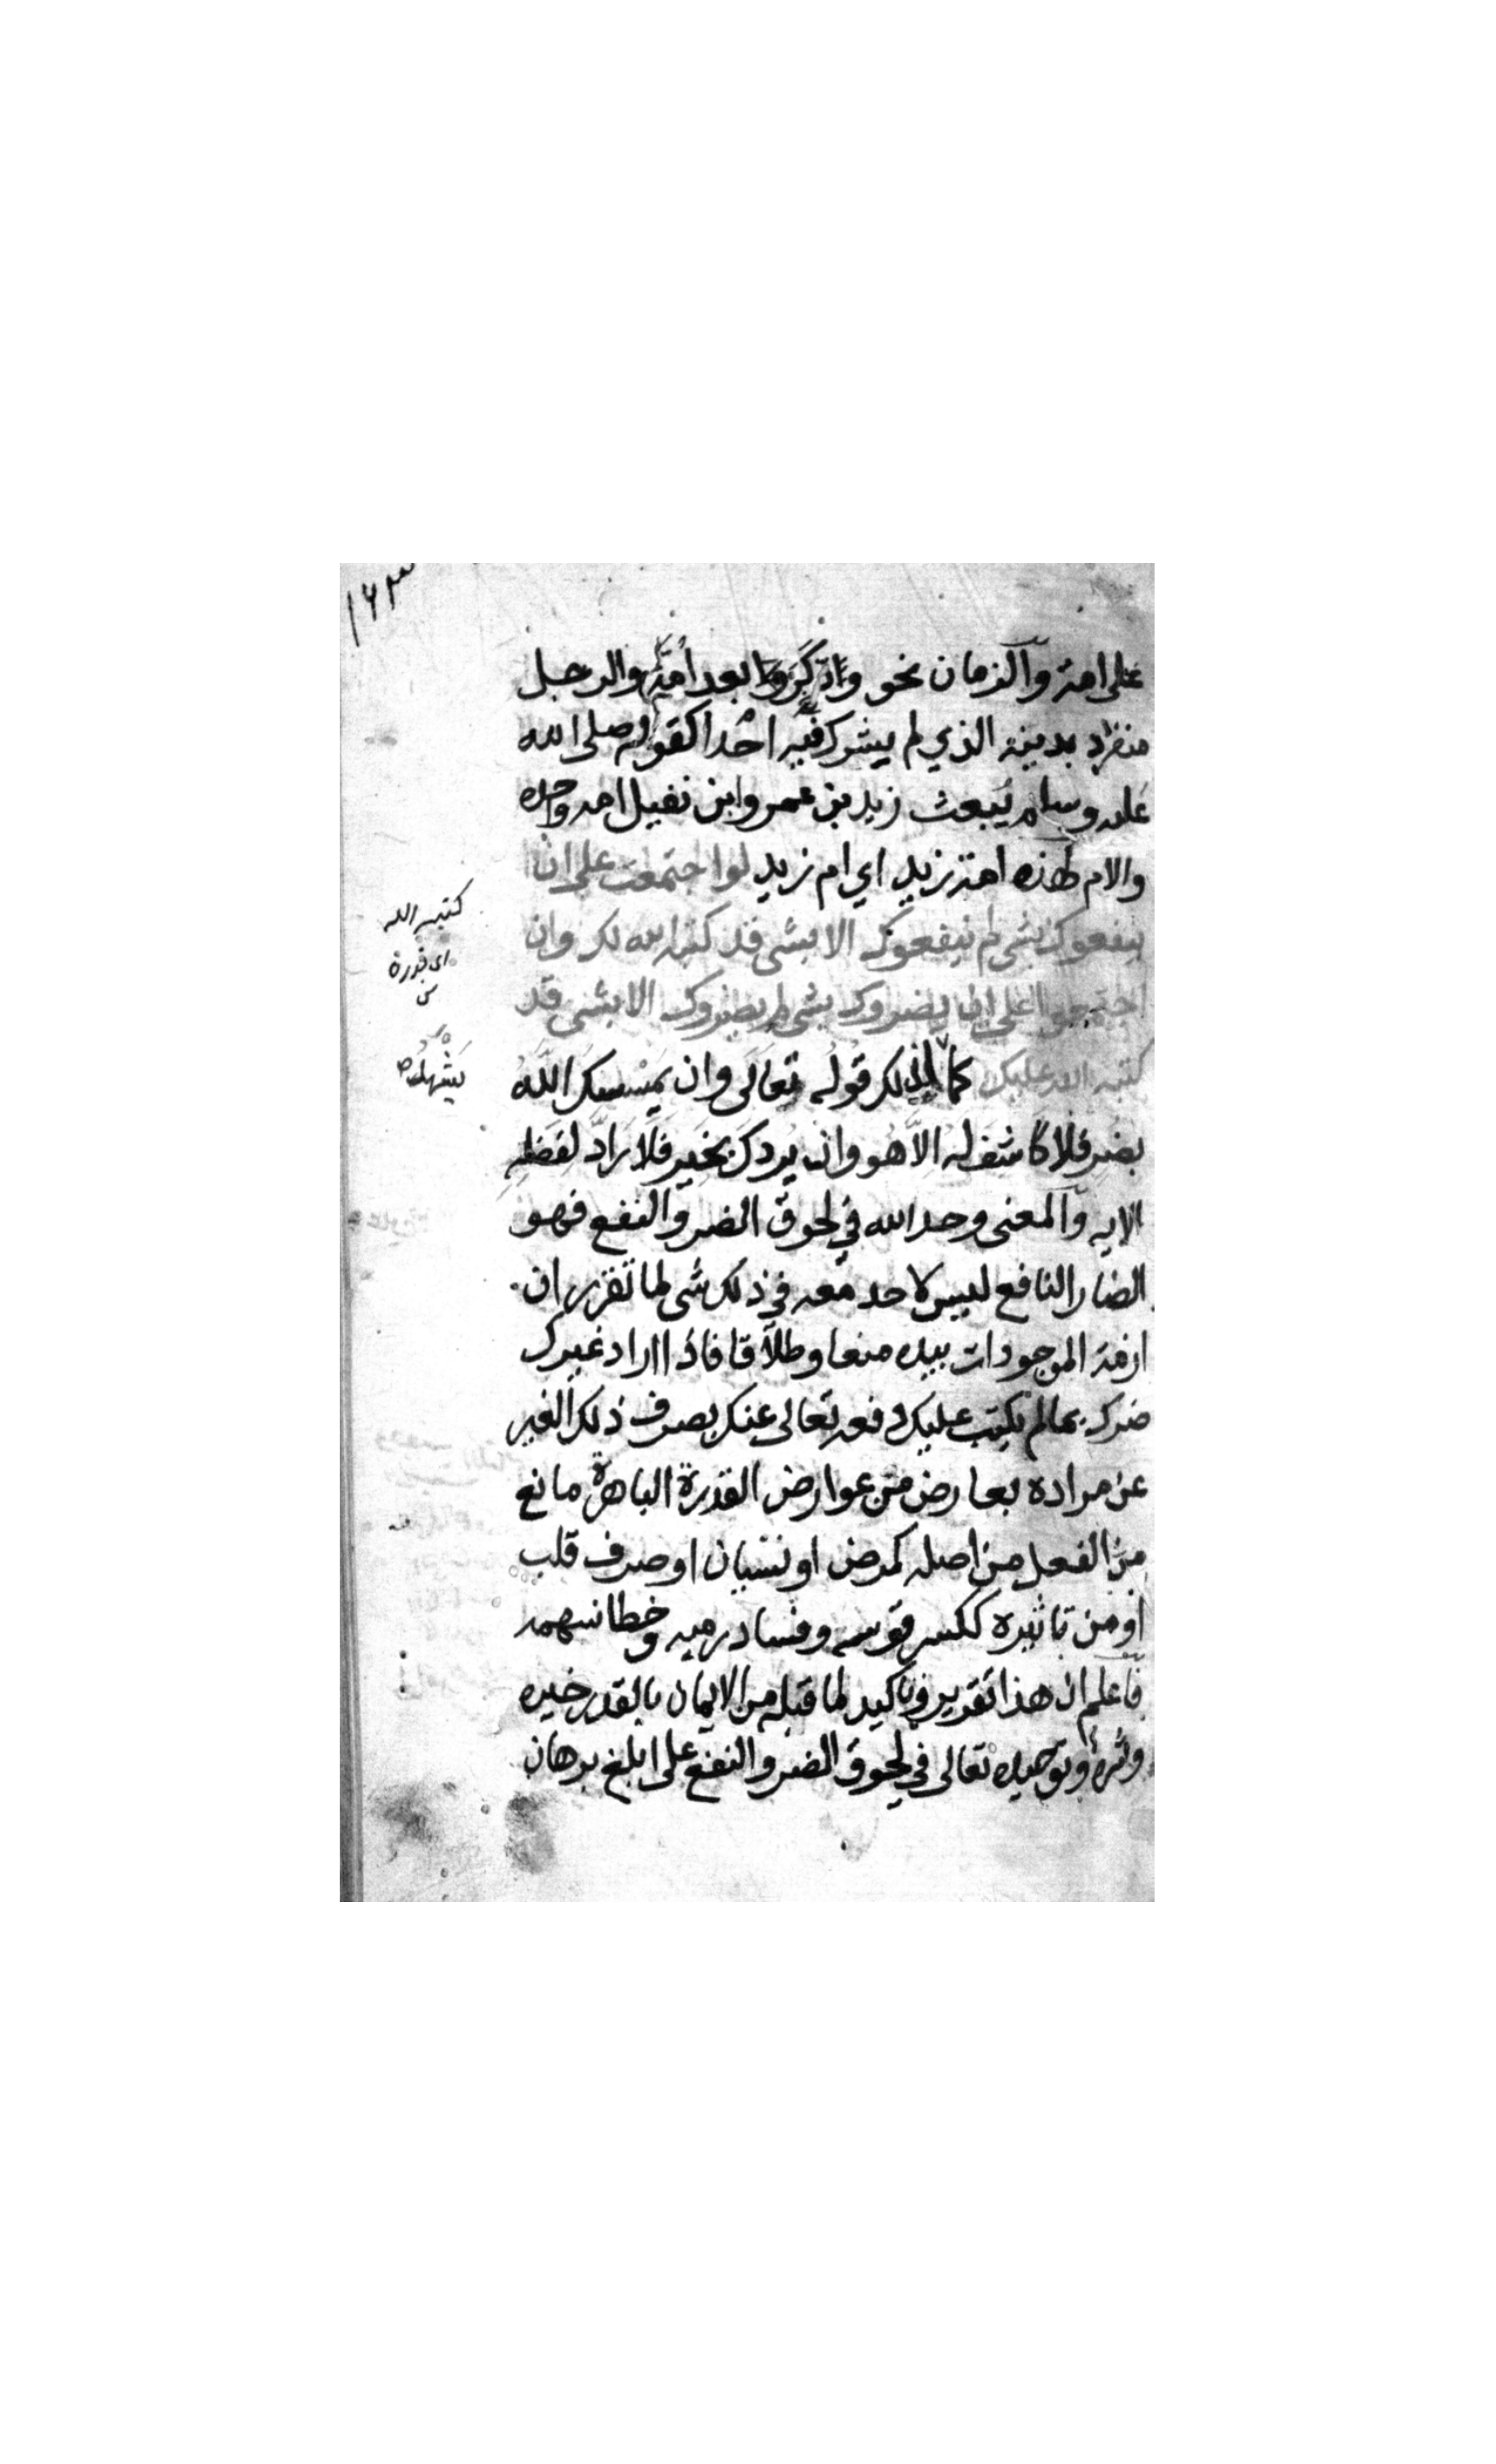 ١٦٣
على امة والزمان نحو وَادَّكَرَ بعد اُمَّةٍ والرجل
منفرد بدينه الذي لم يشرك فيه احدا كقوله صلى الله
عليه وسلم يُبعث زيد بن عمرو ابن نفيل امه وحده
والام كهذه امة زيد اي ام زيد لو اجتمعت على ان
ينفعوك بشي لم ينفعوك الا بشي قد كتبه الله لك وان
اجتمعوا على ان يضروك بشي لم يضروك الا بشي قد
كتبه الله عليك كما لذلك قوله تعالى وان يمسسك الله
بضر فلا كاشف له الا هو وان يردك بخير فلا رادّ لفضله
الايه والمعنى وحد الله في لحوق الضر والنفع فهو
الضار النافع ليس لاحد معه في ذلك شي لما تقرر ان
ازمة الموجودات بيده منعا وطلاقا فاذا اراد غيرك
ضرك بما لم يكتب عليك دفعه تعالى عنك بصرف ذلك الغير
عن مراده بعارض من عوارض القدرة الباهرة مانع
من الفعل من اصله كمرض او نسيان او صرف قلب
او من تاثيره ككسر قوسه وفساد رميه وخطا سهمه
فاعلم ان هذا تقرير وتاكيد لما قبله من الايمان بالقدر خيره
وشره وتوحيده تعالى في لحوق الضر والنفع على ابلغ برهان
كتبه الله
اى قدره
س
يشهد له